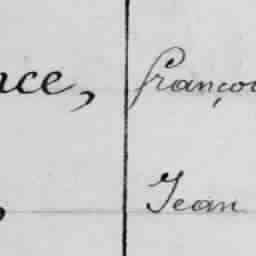 nce, françoi
, Jean